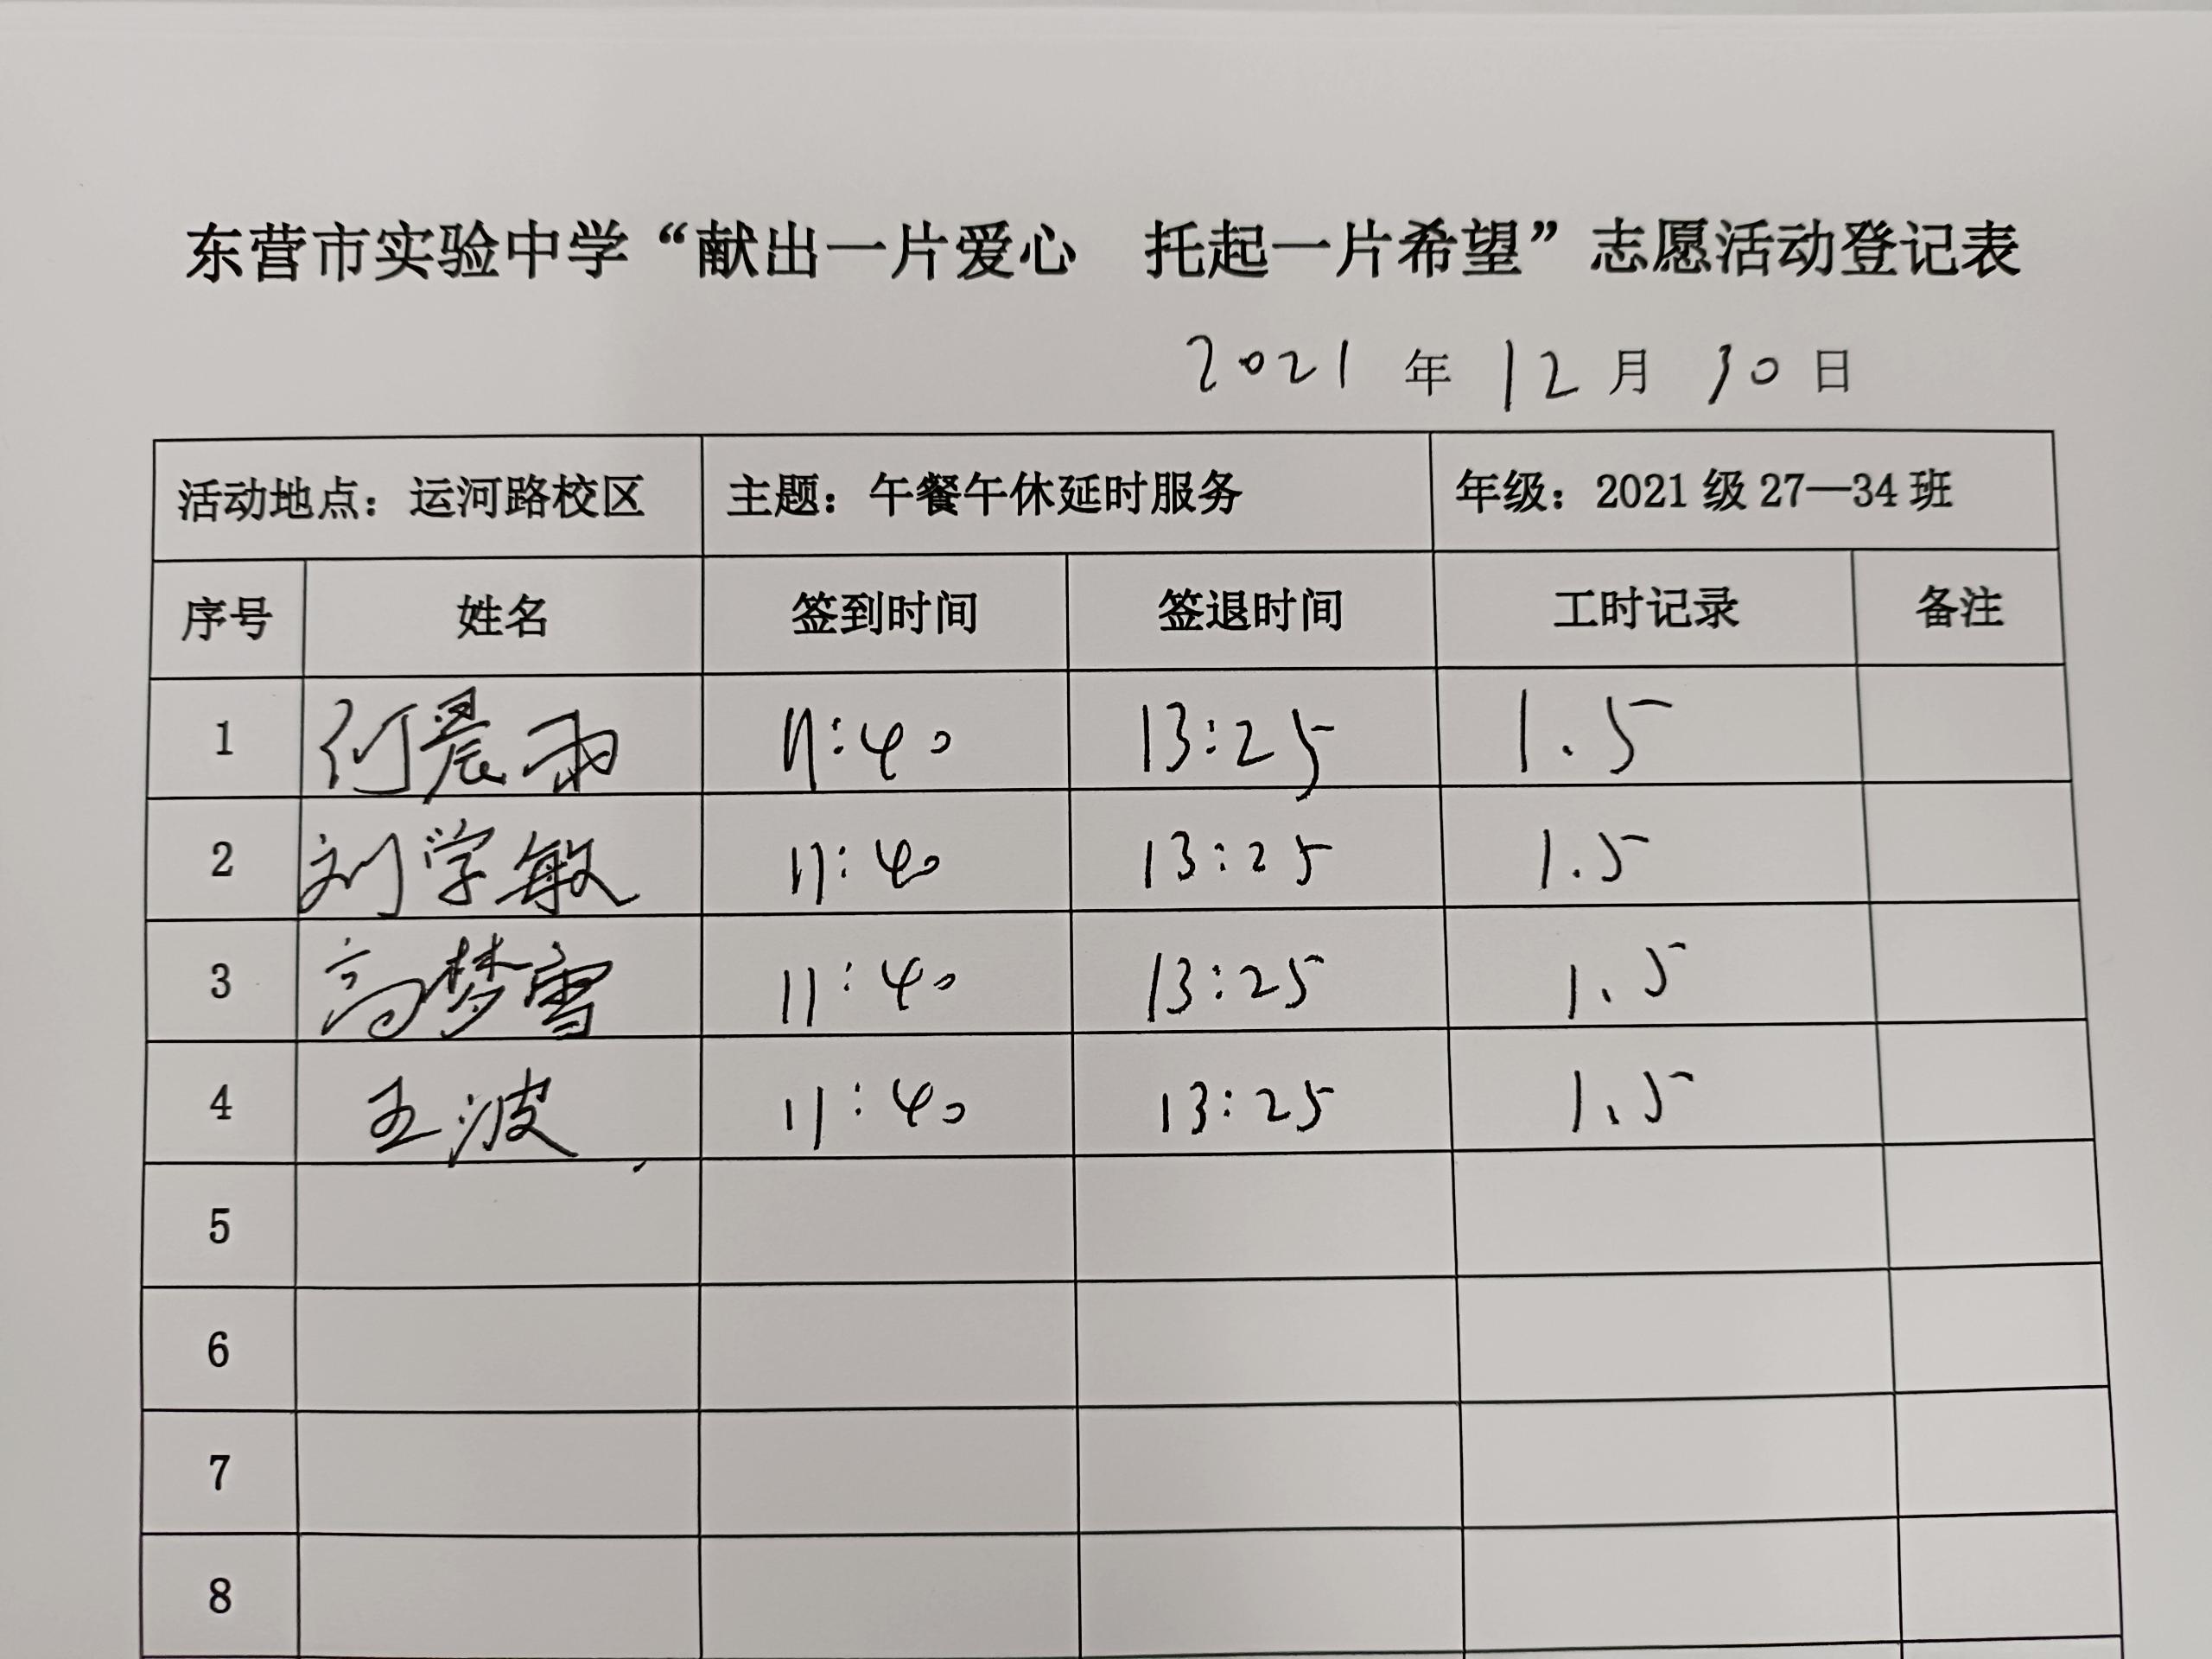 东营市实验中学“献出一片爱心 托起一片希望”志愿活动登记表
2021 年 12 月 30 日
活动地点：运河路校区 主题：午餐午休延时服务 年级：2021 级 27—34 班
序号 姓名 签到时间 签退时间 工时记录 备注
1 何晨雨 11:40 13:25 1.5
2 刘学敏 11:40 13:25 1.5
3 高梦雪 11:40 13:25 1.5
4 王波 11:40 13:25 1.5
5
6
7
8